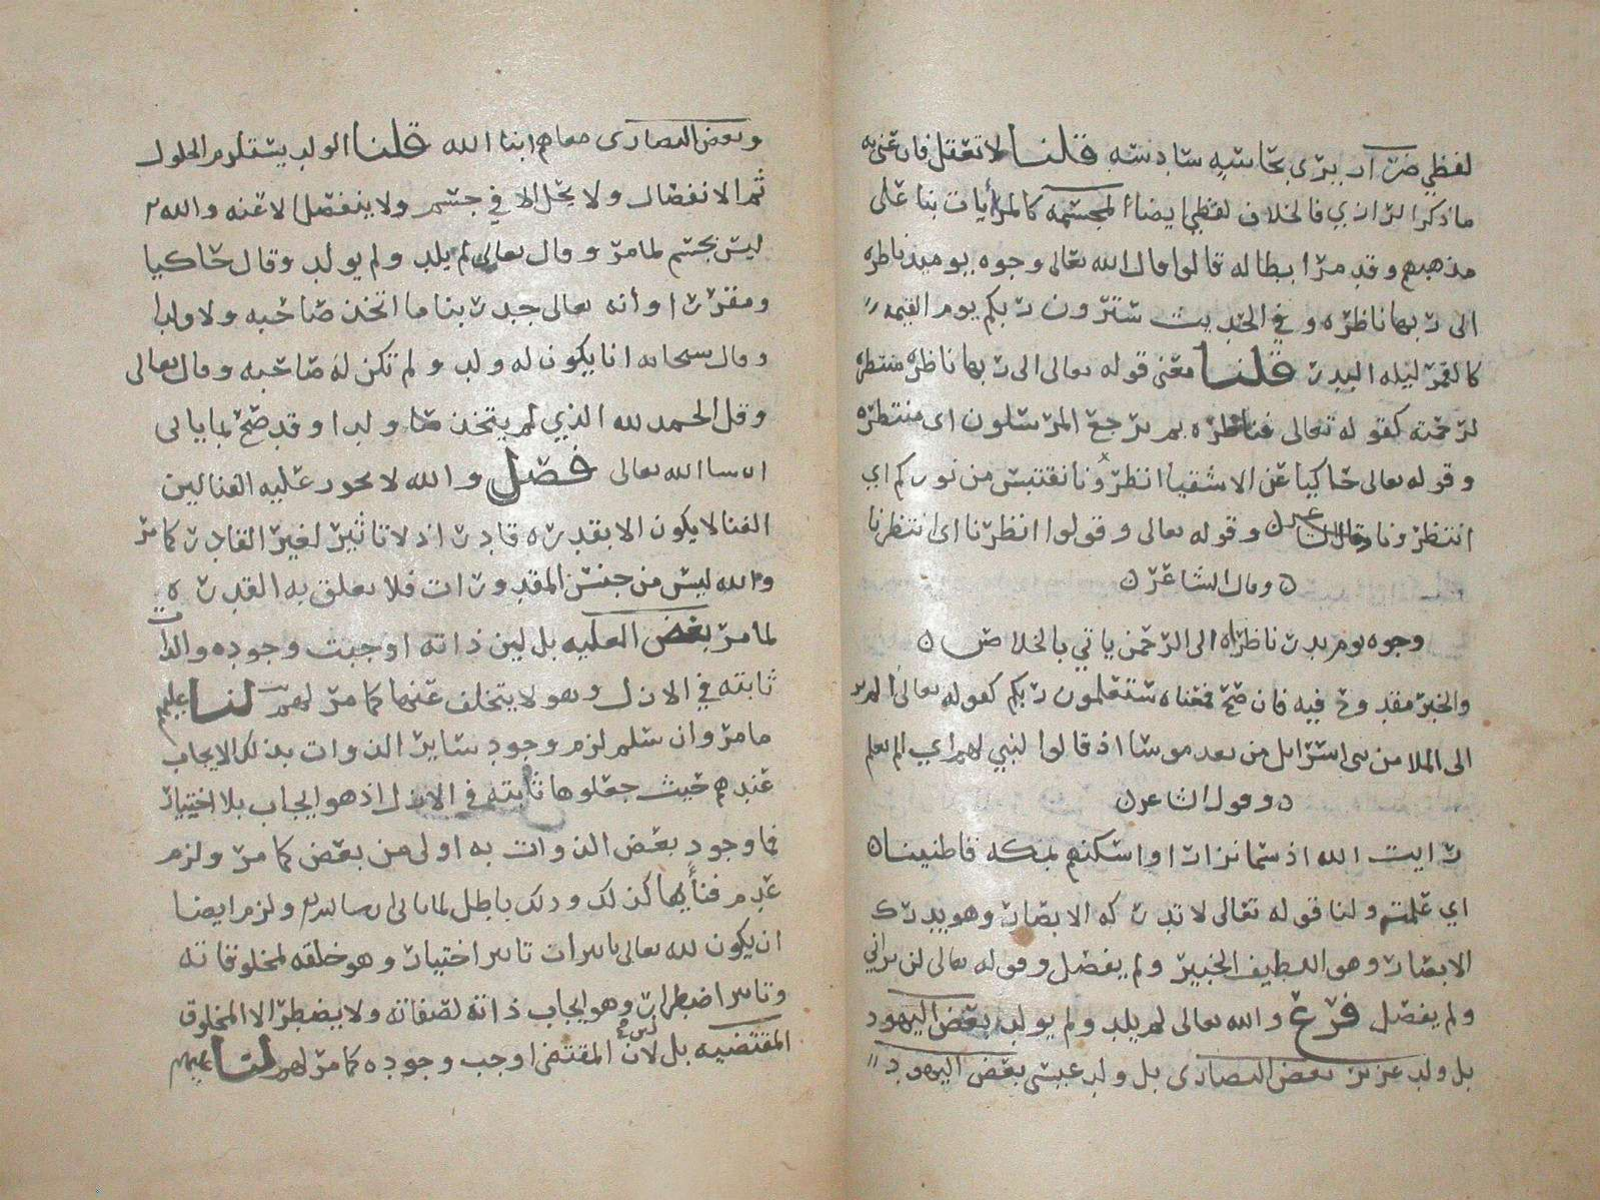 لفظي ضرار يرى بحاسة سادسة قلنا لا تعقل فان عنى به
ما ذكر الرازي فالخلاف لفظي ايضا المجسمة كالمرأيات بنا على
مذهبهم وقد مر ابطاله قالوا قال الله تعالى وجوه يوميذ ناظره
الى ربها ناظره وفي الحديث سترون ربكم يوم القيمه
كالقمر ليله البدر قلنا معنى قوله تعالى الى ربها ناظره منتظره
لرحمته كقوله تعالى فناظره بم يرجع المرسلون اى منتظره
وقوله تعالى حاكيا عن الاشقيا انظرونا نقتبس من نوركم اي
انتظرونا وقوله تعالى وقولوا انظرنا اى انتظرنا
وقال الشاعر
وجوه يوم بدر ناظراه الى الرحمن ياتي بالخلاص
والخبر مقدوح فيه فان صح فمعناه ستعلمون ربكم كقوله تعالى الم تر
الى الملا من بنى اسرايل من بعد موسا اذ قالوا لنبي لهم اي الم تعلم
وقول الشاعر
رايت الله اذ سما نزارا واسكنهم بمكه قاطنينا
اي علمت ولنا قوله تعالى لا تدركه الابصار وهو يدرك
الابصار وهو اللطيف الخبير ولم يفصل وقوله تعالى لن تراني
ولم يفصل فرع والله تعالى لم يلد ولم يولد بعض اليهود
بل ولد عزير بعض النصارى بل ولد عيسى بعض اليهود
وبعض النصارى معا هم ابنا الله قلنا الولد يستلزم الحلول
ثم الانفصال ولا يحل الا في جسم ولا ينفصل الا عنه والله
ليس بجسم لما مر وقال تعالى لم يلد ولم يولد وقال حاكيا
ومقررا وأنه تعالى جد ربنا ما اتخذ صاحبه ولا ولدا
وقال سبحانه انا يكون له ولد ولم تكن له صاحبه وقال تعالى
وقل الحمد لله الذي لم يتخذ ولدا وقد صح لما ياتى
ان شا الله تعالى فصل والله لا يجوز عليه الفنا لين
الفنا لا يكون الا بقدره قادر اذ لا تاثير لغير القادر كما مر
والله ليس من جنس المقدورات فلا تعلق به القدره
لما مر بعض العليه بل لين ذاته اوجبت وجوده والذات
ثابته في الازل وهو لا يتخلف عنها كما مر لهم لنا عليهم
ما مر وان سلم لزم وجود ساير الذوات بذلك الايجاب
عندهم حيث جعلوها ثابته في الازل اذ هو ايجاب بلا اختيار
فما وجود بعض الذوات به اولى من بعض كما مر ولزم
عدم فنأيها كذلك وذلك باطل لما ياتى ان شا الله ولزم ايضا
ان يكون لله تعالى تاثيرات تاثير اختيار وهو خلقه لمخلوقاته
وتاثير اضطرار وهو ايجاب ذاته لصفاته ولا يضطر الا المخلوق
المقتضيه بل لان المقتضى اوجب وجوده كما مر لهم لنا عليهم